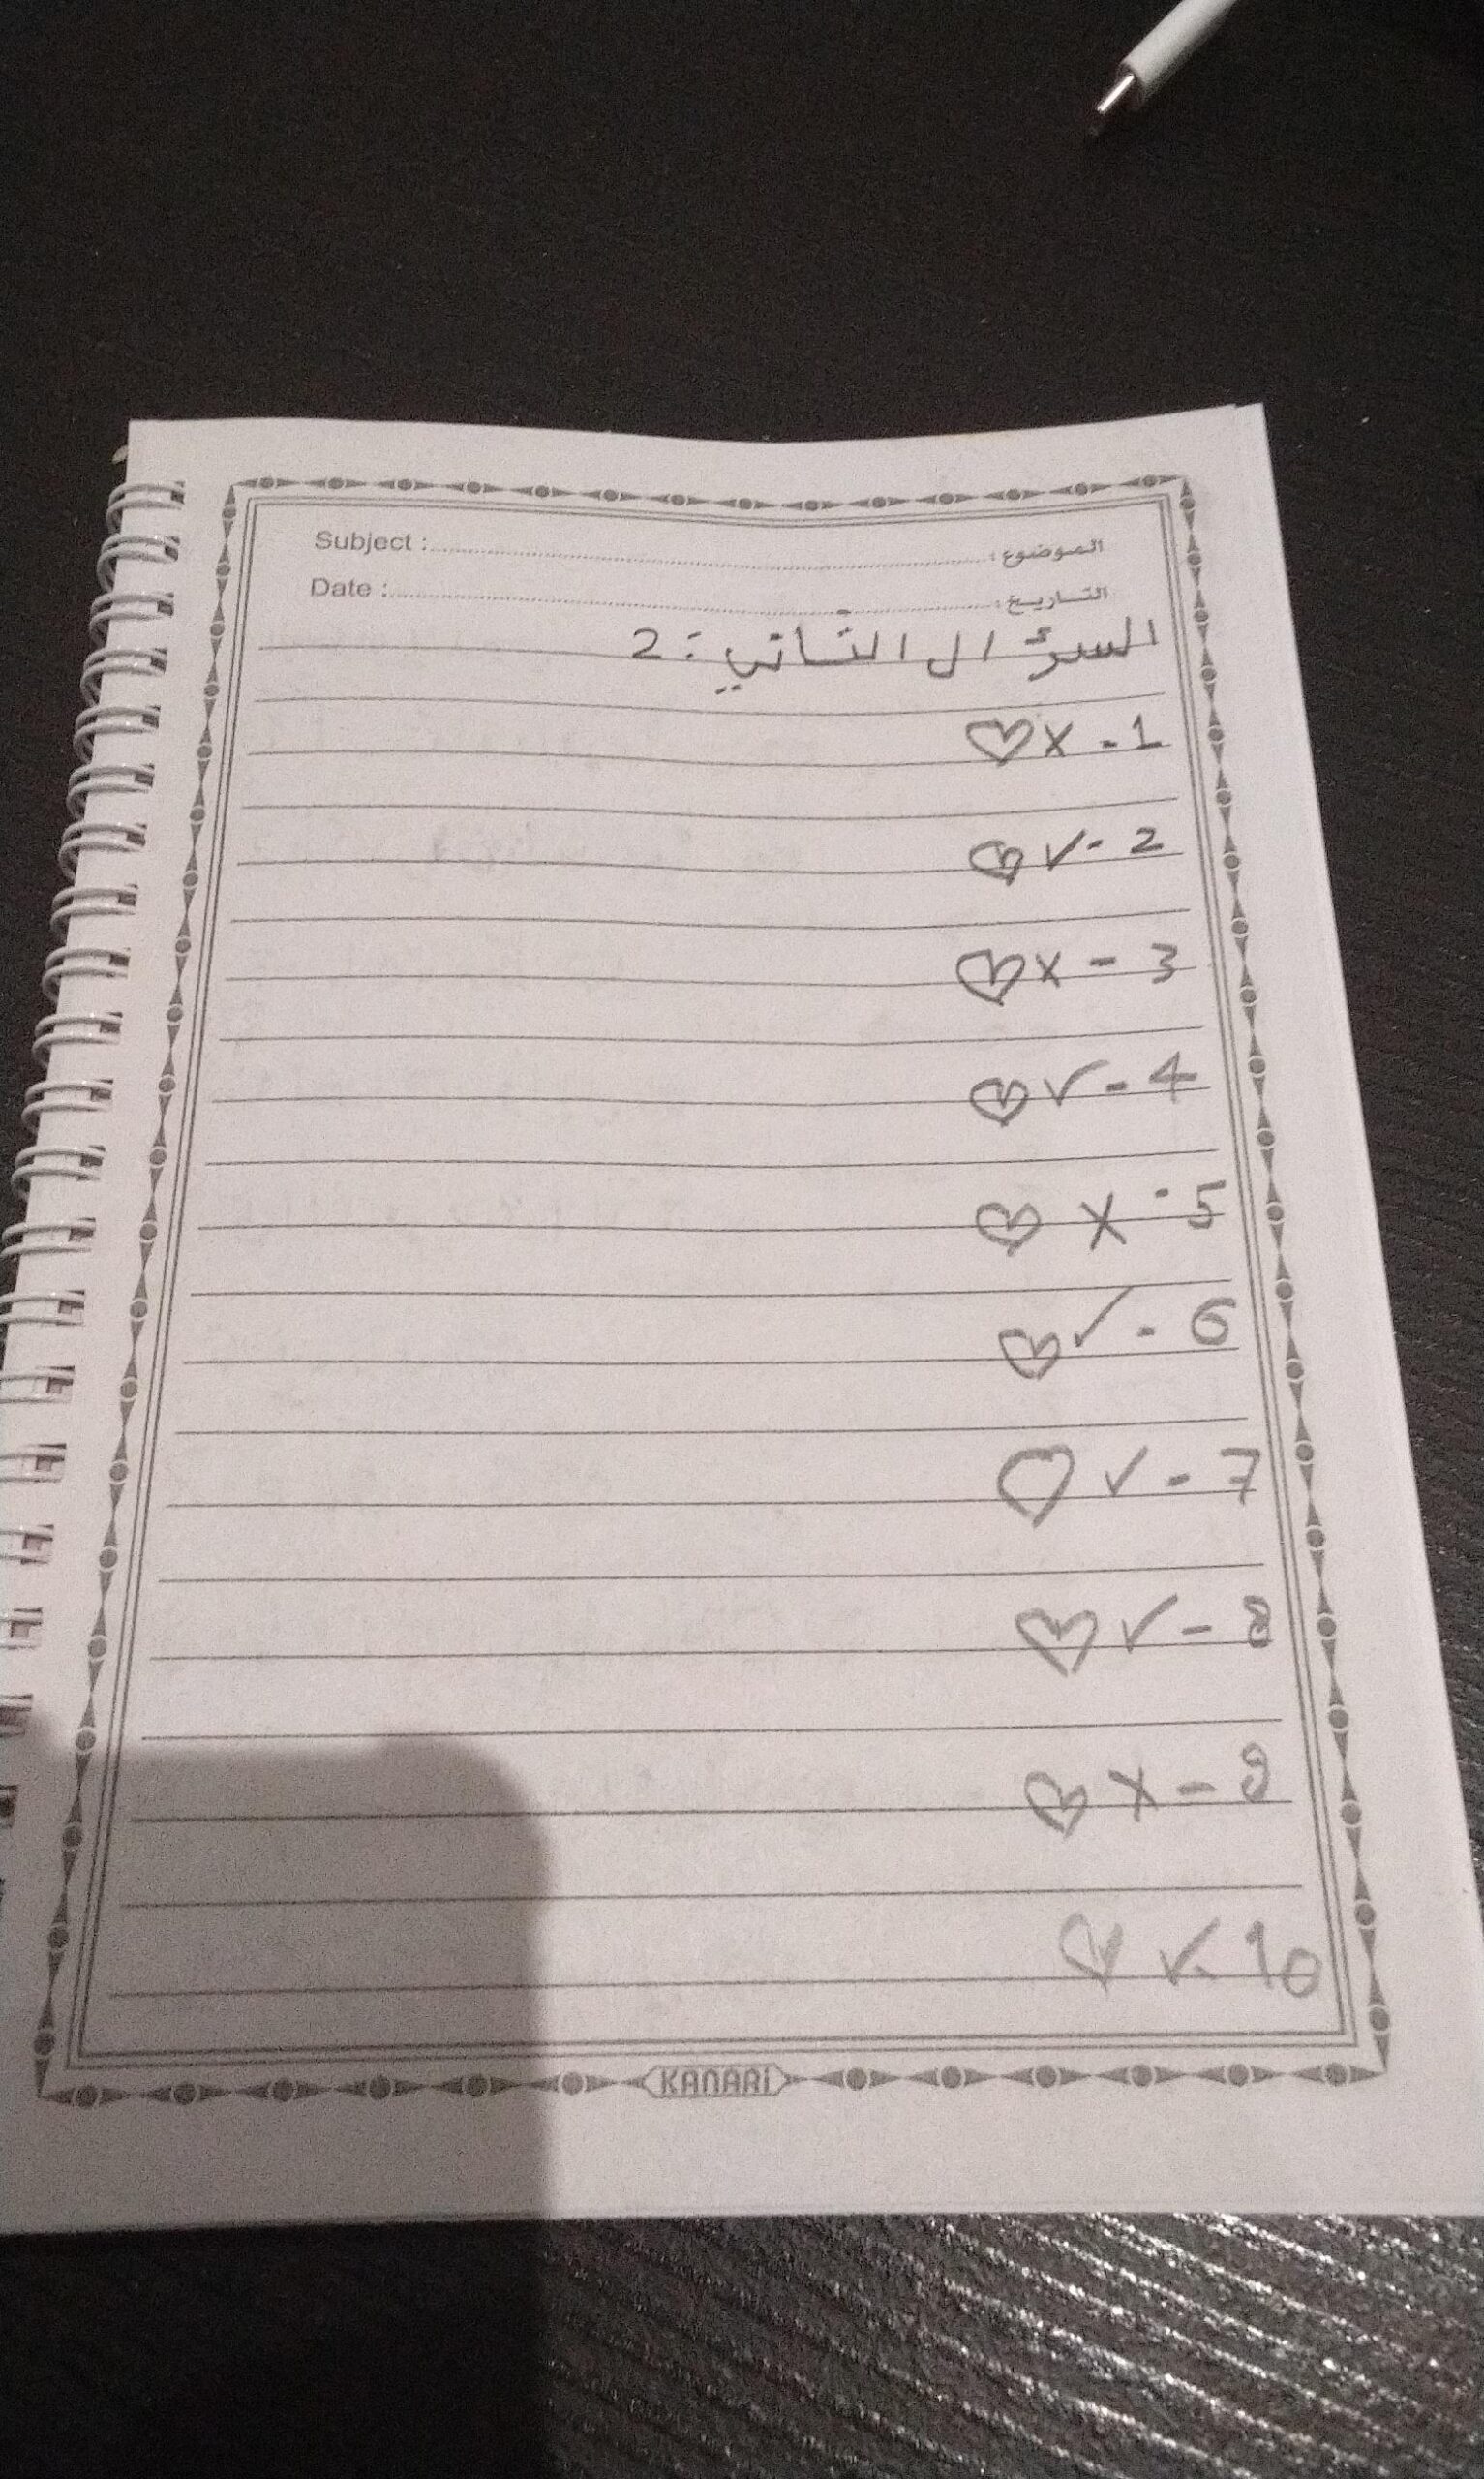 Subject : الموضوع :
Date : التاريخ :
السؤال الثاني : 2
1 - x ♡
2 - ✓ ♡
3 - x ♡
4 - ✓ ♡
5 - x ♡
6 - ✓ ♡
7 - ✓ ♡
8 - ✓ ♡
9 - x ♡
10 - ✓ ♡
KANARi